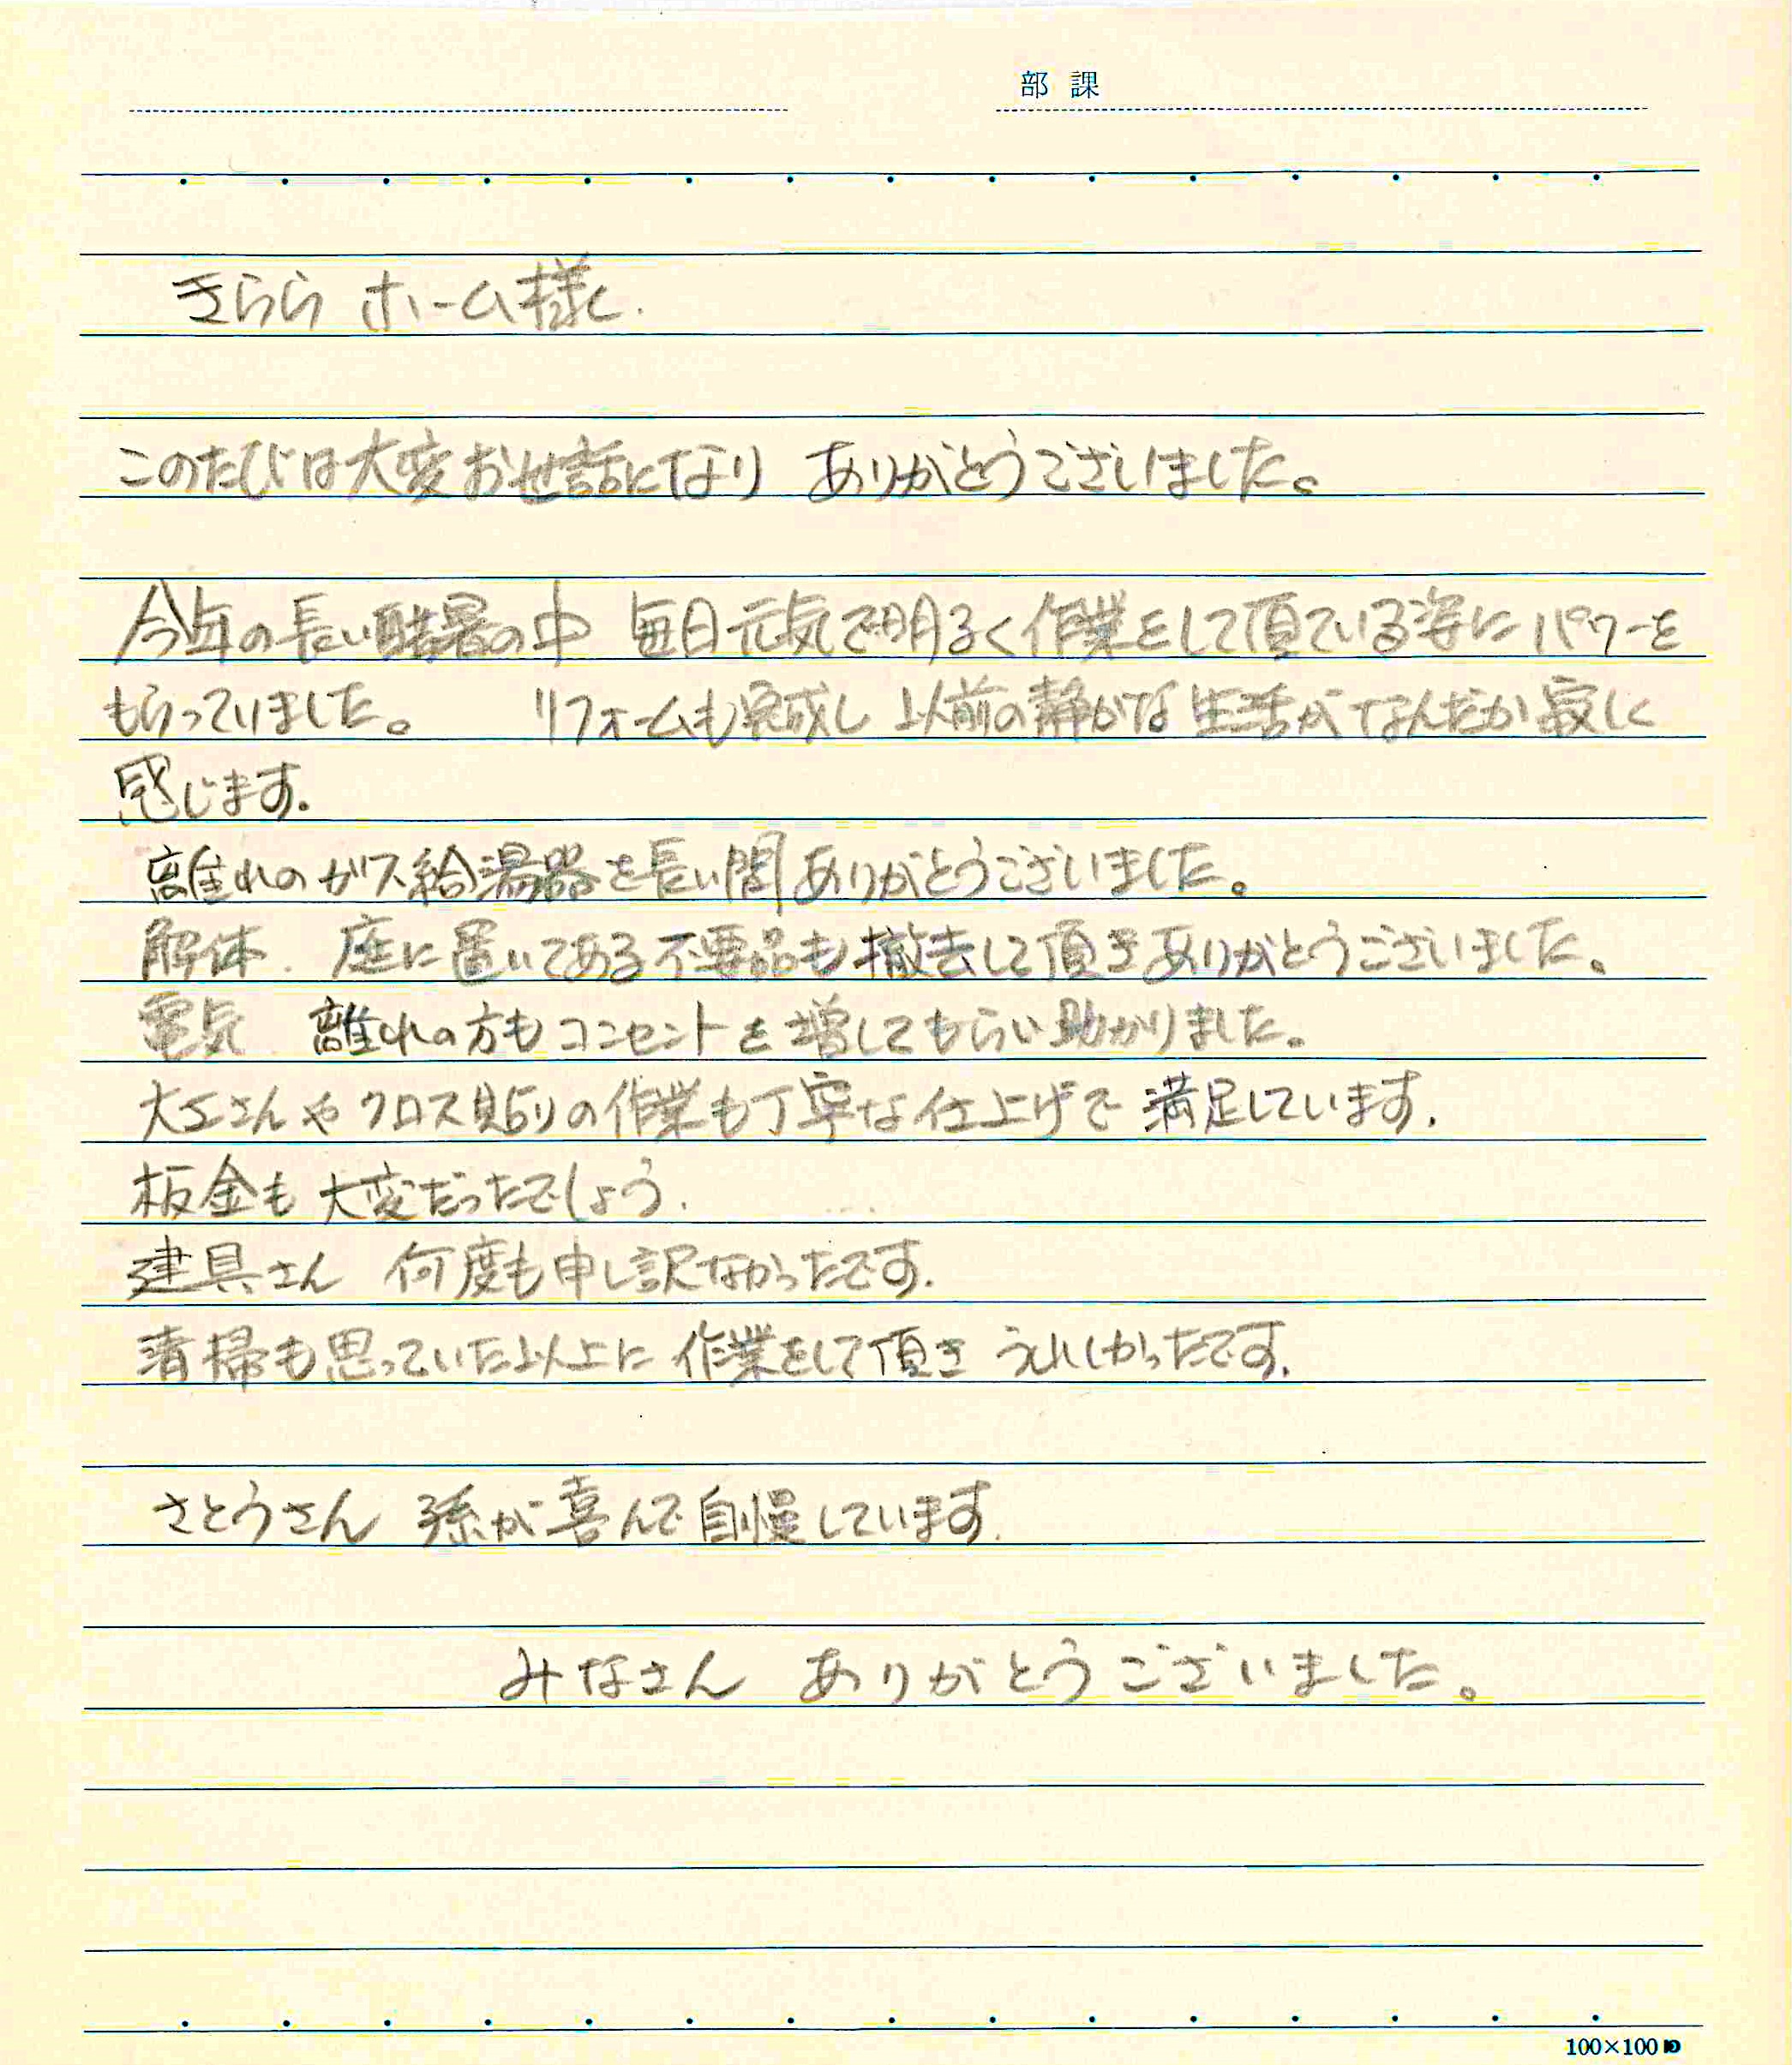 部 課
きらら ホーム様
このたびは大変お世話になり ありがとうございました。
今年の長い酷暑の中 毎日元気で明るく作業をして頂ている姿にパワーを
もらっていました。 リフォームも完成し 以前の静かな生活がなんだか寂しく
感じます.
離れのガス給湯器を長い間ありがとうございました。
解体. 庭に置いてある不要品も撤去して頂きありがとうございました。
電気 離れの方もコンセントを増してもらい助かりました。
大工さんやクロス貼りの作業も丁寧な仕上げで 満足しています.
板金も大変だったでしょう.
建具さん 何度も申し訳なかったです.
清掃も思っていた以上に 作業をして頂き うれしかったです.
さとうさん 孫が喜んで自慢しています.
みなさん ありがとうございました。
100×100